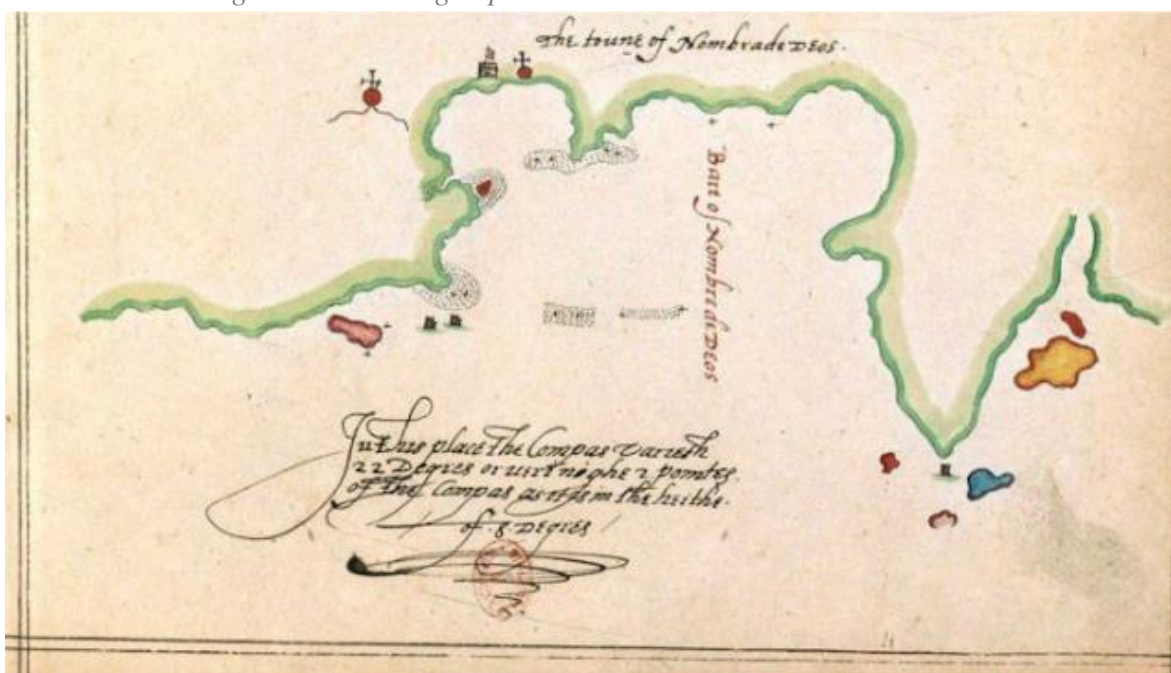 The toune of Nombrade Deos.
Baie of Nombre di Deos
In this place the Compas varieth
22 Degres or neghe 2 pointes
of the Compas as it is in the
of .8. Degres